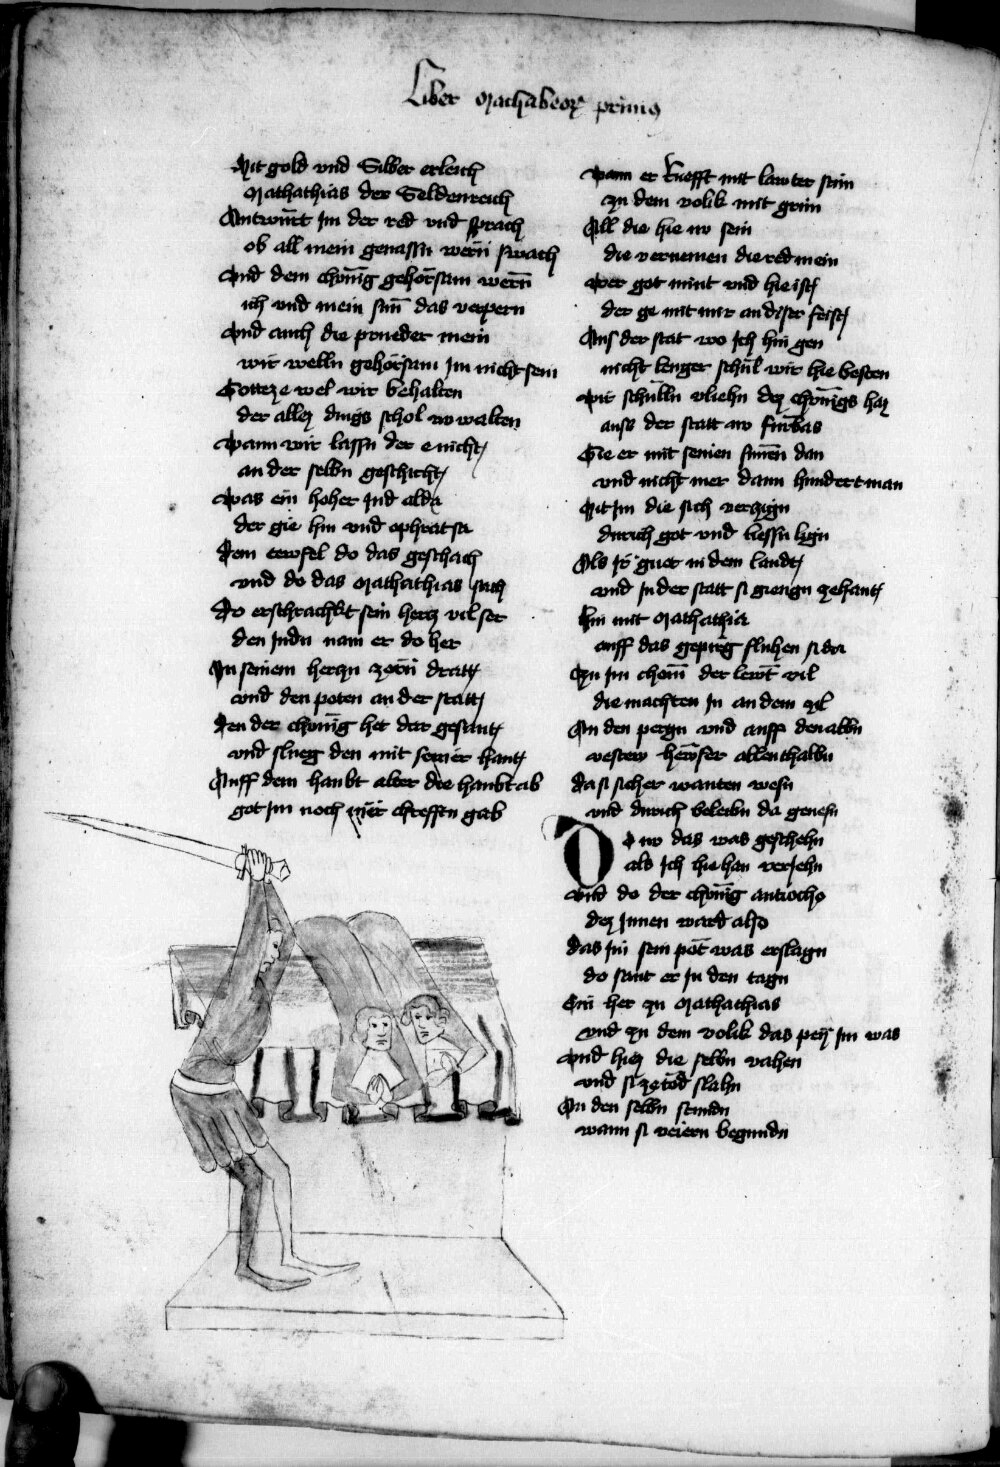 Liber Machabeorum primus
Mit gold vnd Silber erleich
Mathathias der Seldenreich
Antwurt Im der red vnd sprach
ob all mein genassn wern swach
Vnd dem chönig gehorsam wern
ich vnd mein sun das verpern
Vnd auch die prueder mein
wir welln gehorsam Im nicht sein
Gottez e wel wir behalten
der allez dings schol nv walten
Wann wir lassn der e nicht
an der selbn geschicht
Was ein hoher Jud alda
der gie hin vnd ophrat sa
Dem tewfel do das geschach
vnd do das Mathathias sach
Do erschrachkt sein hercz vil ser
den Judn nam er do her
In seinem herczn zorn dratt
vnd den poten an der statt
den der chönig het dar gesant
vnd slueg den mit seiner hant
Auff dem haubt alter die haubt ab
got Im noch mer chrefftn gab
Wann er Ruefft mit lawter stim
zu dem volik mit grim
All die hie nv sein
die vernemen die red mein
Wer got mint vnd hie ist
der ge mit mir an diser frist
Aus der stat wo Ich hin gen
nicht lenger schul wir hie besten
Wir schulln vliehn dez chönigs haz
auss der statt nv furbas
Gie er mit seinen sunen dan
vnd nicht mer dann hundert man
Mit Im die sich verzign
durich got vnd liessn lign
Als Ir guet in dem landt
vnd In der statt si giengn zehant
Hin mit Mathathia
auff das gepirg fluhen si da
Zu Im chom der lewt vil
die machten In an dem zil
An den pergn vnd auff den albn
vesten hewser allenthalbn
da si sicher wanten wesn
vnd durich beleibn da genesn
Do nv das was geschehn
als Ich hie han veriehn
Vnd do der chönig antiochus
dez Innen ward also
das Im sein pot was erslagn
do sant er In den tagn
Ein her zu Mathathias
vnd zu dem volik das pey Im was
Vnd hiez die selbn vahen
vnd si ze tod slahn
An den selbn stundn
wann si veiern begundn